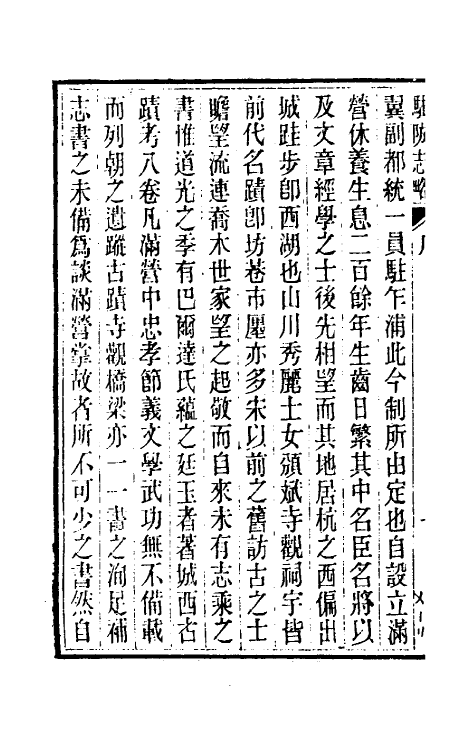 駐防志略 序
翼副都統一員駐乍浦此今制所由定也自設立滿
營休養生息二百餘年生齒日繁其中名臣名將以
及文章經學之士後先相望而其地居杭之西偏出
城跬步卽西湖也山川秀麗士女頒斌寺觀祠宇皆
前代名蹟卽坊巷市廛亦多宋以前之舊訪古之士
瞻望流連喬木世家望之起敬而自來未有志乘之
書惟道光之季有巴爾達氏蘊之廷玉者著城西古
蹟考八卷凡滿營中忠孝節義文學武功無不備載
而列朝之遺蹤古蹟寺觀橋梁亦一一書之洵足補
志書之未備爲談滿營掌故者所不可少之書然自